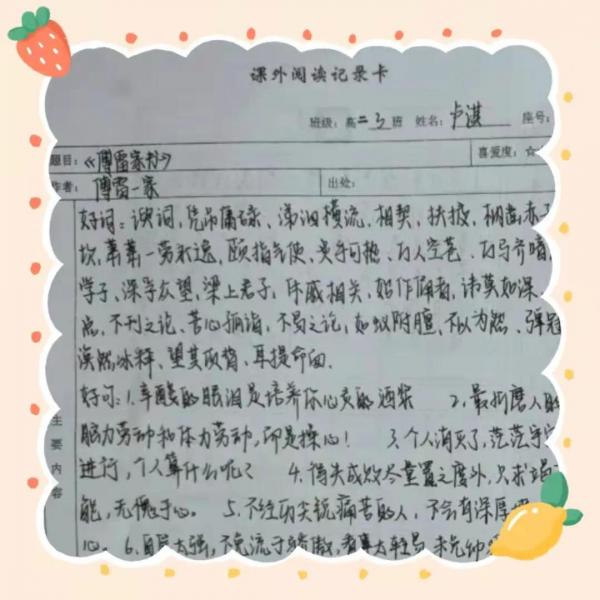 课外阅读记录卡
班级:高二3班 姓名:卢淇 座号:
题目:《傅雷家书》 喜爱度:☆
作者:傅雷一家 出处:
主要内容
好词:诀词、凭吊 涕泪横流、相契、扶掖、
一劳永逸、颐指气使、炙手可热、万人空巷、万马齐喑、
学子、深孚众望、梁上君子、休戚相关、始作俑者、讳莫如深、
不刊之论、苦心孤诣、不易之论、如蚁附膻、不以为然、弹冠
涣然冰释、望其项背、耳提命面.
好句:1.辛酸的眼泪是培养你心灵的酒浆 2.最折磨人的
脑力劳动和体力劳动,即是操心! 3.个人消灭了,茫茫宇宙
进行,个人算什么呢? 4.得失成败尽量置之度外,只求
能,无愧于心. 5.不经历尖锐痛苦的人,不会有深厚
心. 6.自信太强,不免流于骄傲,看事太轻易,未免